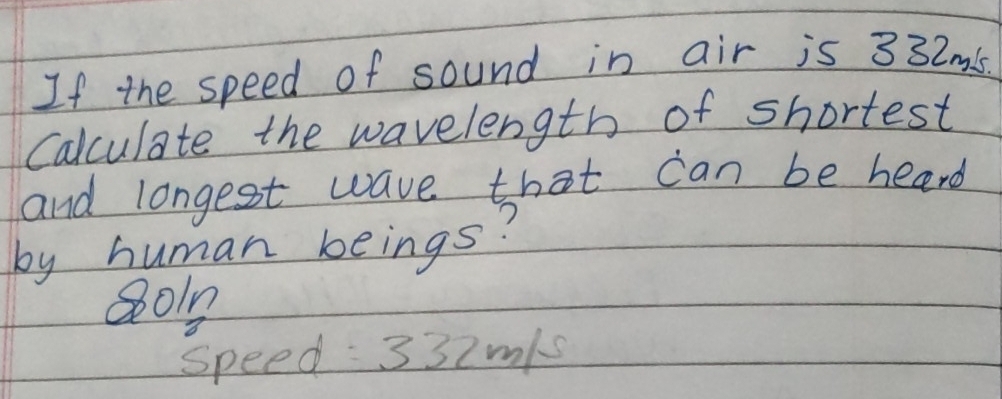 If the speed of sound in air is 332m/s.
Calculate the wavelength of shortest
and longest wave that can be heard
by human beings?
Soln
Speed : 332m/s